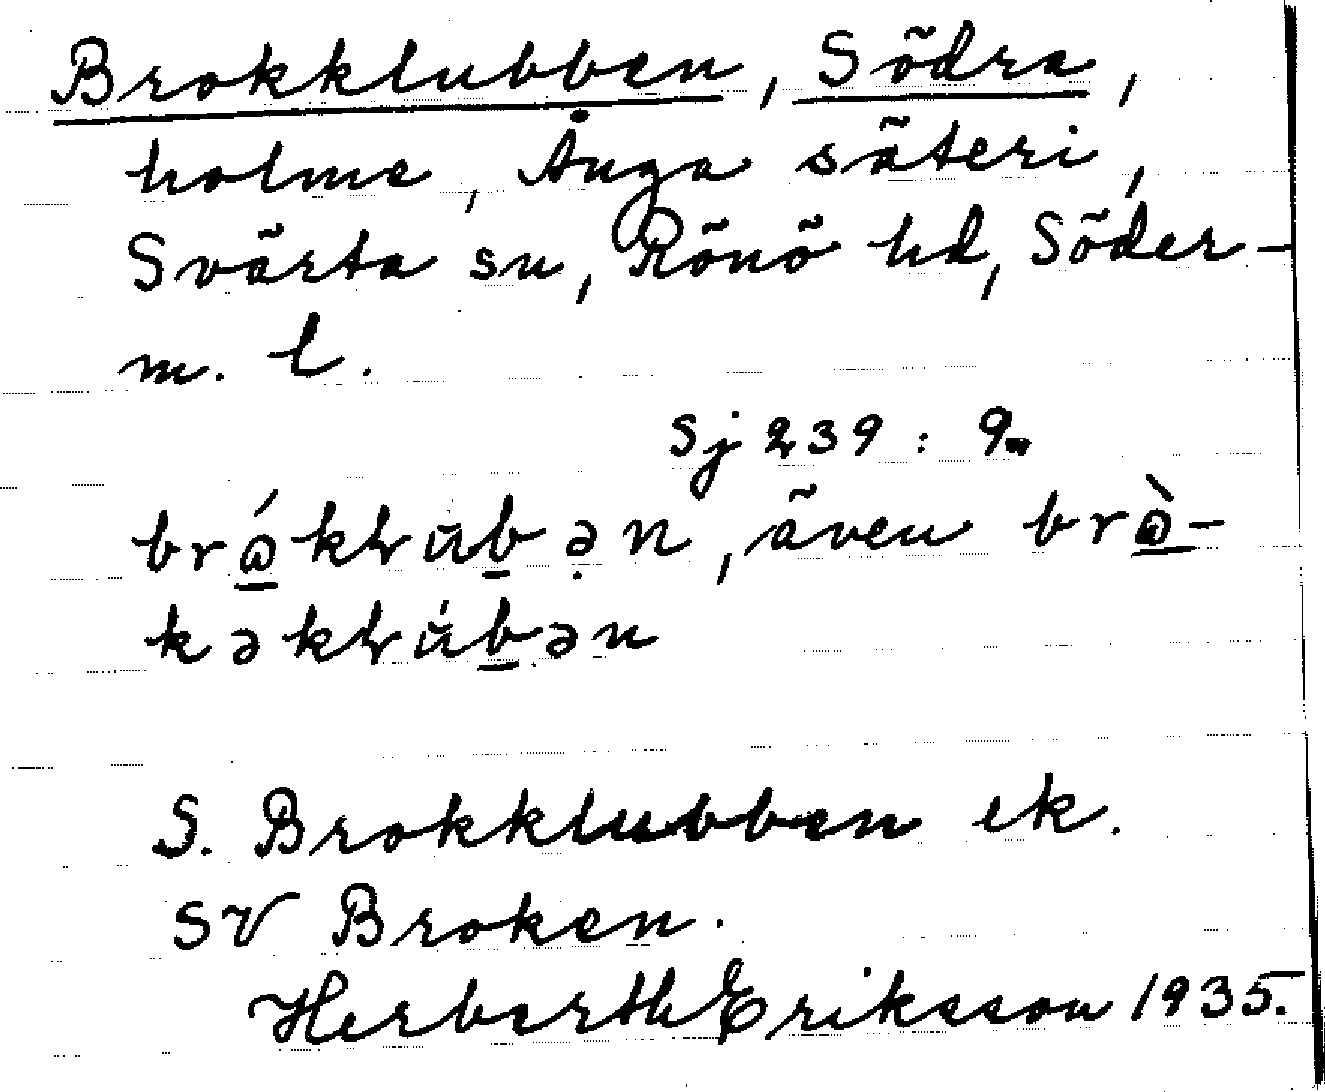 Brokklubben, Södra,
holme, Ånga säteri,
Svärta sn, Rönö hd, Söder-
m. l.
Sj 239 : 9
även
S. Brokklubben ek.
SV Broken.
Herberth Eriksson 1935.